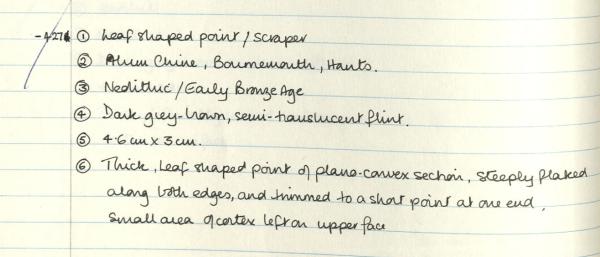 -427 ① Leaf shaped point / scraper
② Alum Chine, Bournemouth, Hants.
③ Neolithic / Early Bronze Age
④ Dark grey-brown, semi-translucent flint.
⑤ 4.6 cm x 3 cm.
⑥ Thick, leaf shaped point of plano-convex section, steeply flaked
along both edges, and trimmed to a short point at one end.
Small area of cortex left on upper face